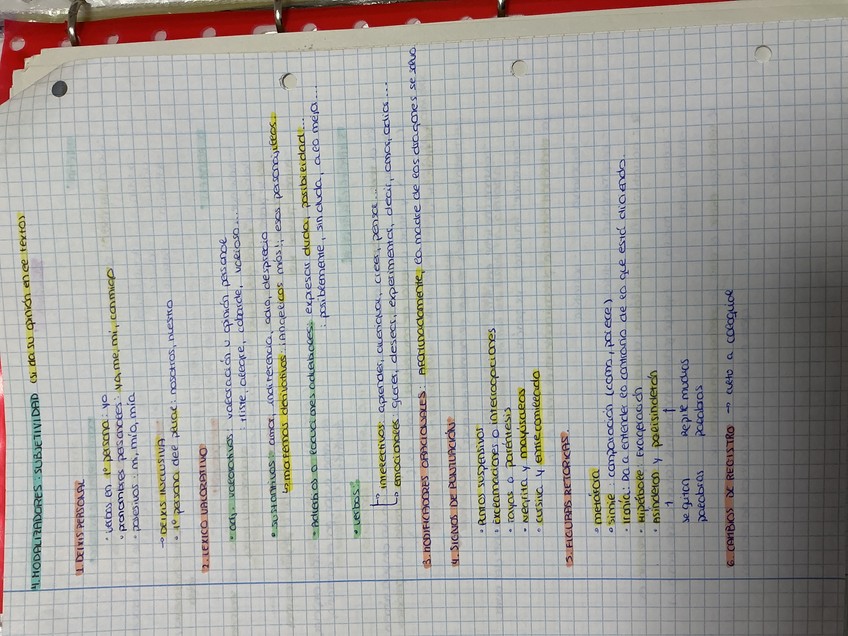 4. MODALIZADORES: SUBJETIVIDAD (si da su opinión en el texto)
1. DEIXIS PERSONAL
• verbos en 1ª persona: yo
• pronombres personales: yo, me, mí, conmigo
• posesivos: mi, mío, mía
→ DEIXIS INCLUSIVA
• 1ª persona del plural: nosotros, nuestro
2. LÉXICO VALORATIVO
• adj. valorativos: valoración u opinión personal
: triste, alegre, cobarde, valioso...
• sustantivos: amor, indiferencia, odio, desprecio
↳ morfemas derivativos:
• Adverbios o locuciones adverbiales: expresar duda, posibilidad...
: posiblemente, sin duda, a lo mejor...
• verbos:
↳ intelectivos: aprender, creer, pensar...
↳ emocionales: querer, desear, experimentar, decir, amar, odiar...
3. MODIFICADORES ORACIONALES: Afortunadamente, la madre de los dragones se salvó
4. SIGNOS DE PUNTUACIÓN
• Puntos suspensivos
• Exclamaciones o interrogaciones
• rayas o paréntesis
• Negrita y mayúsculas
• cursiva y entrecomillado
5. FIGURAS RETÓRICAS
• metáfora
• símil: comparación (como, parece)
• Ironía: da a entender lo contrario de lo que está diciendo
• Hipérbole: Exageración
• Asíndeton y polisíndeton
se quitan palabras
Repite muchas palabras
6. CAMBIOS DE REGISTRO → culto a coloquial